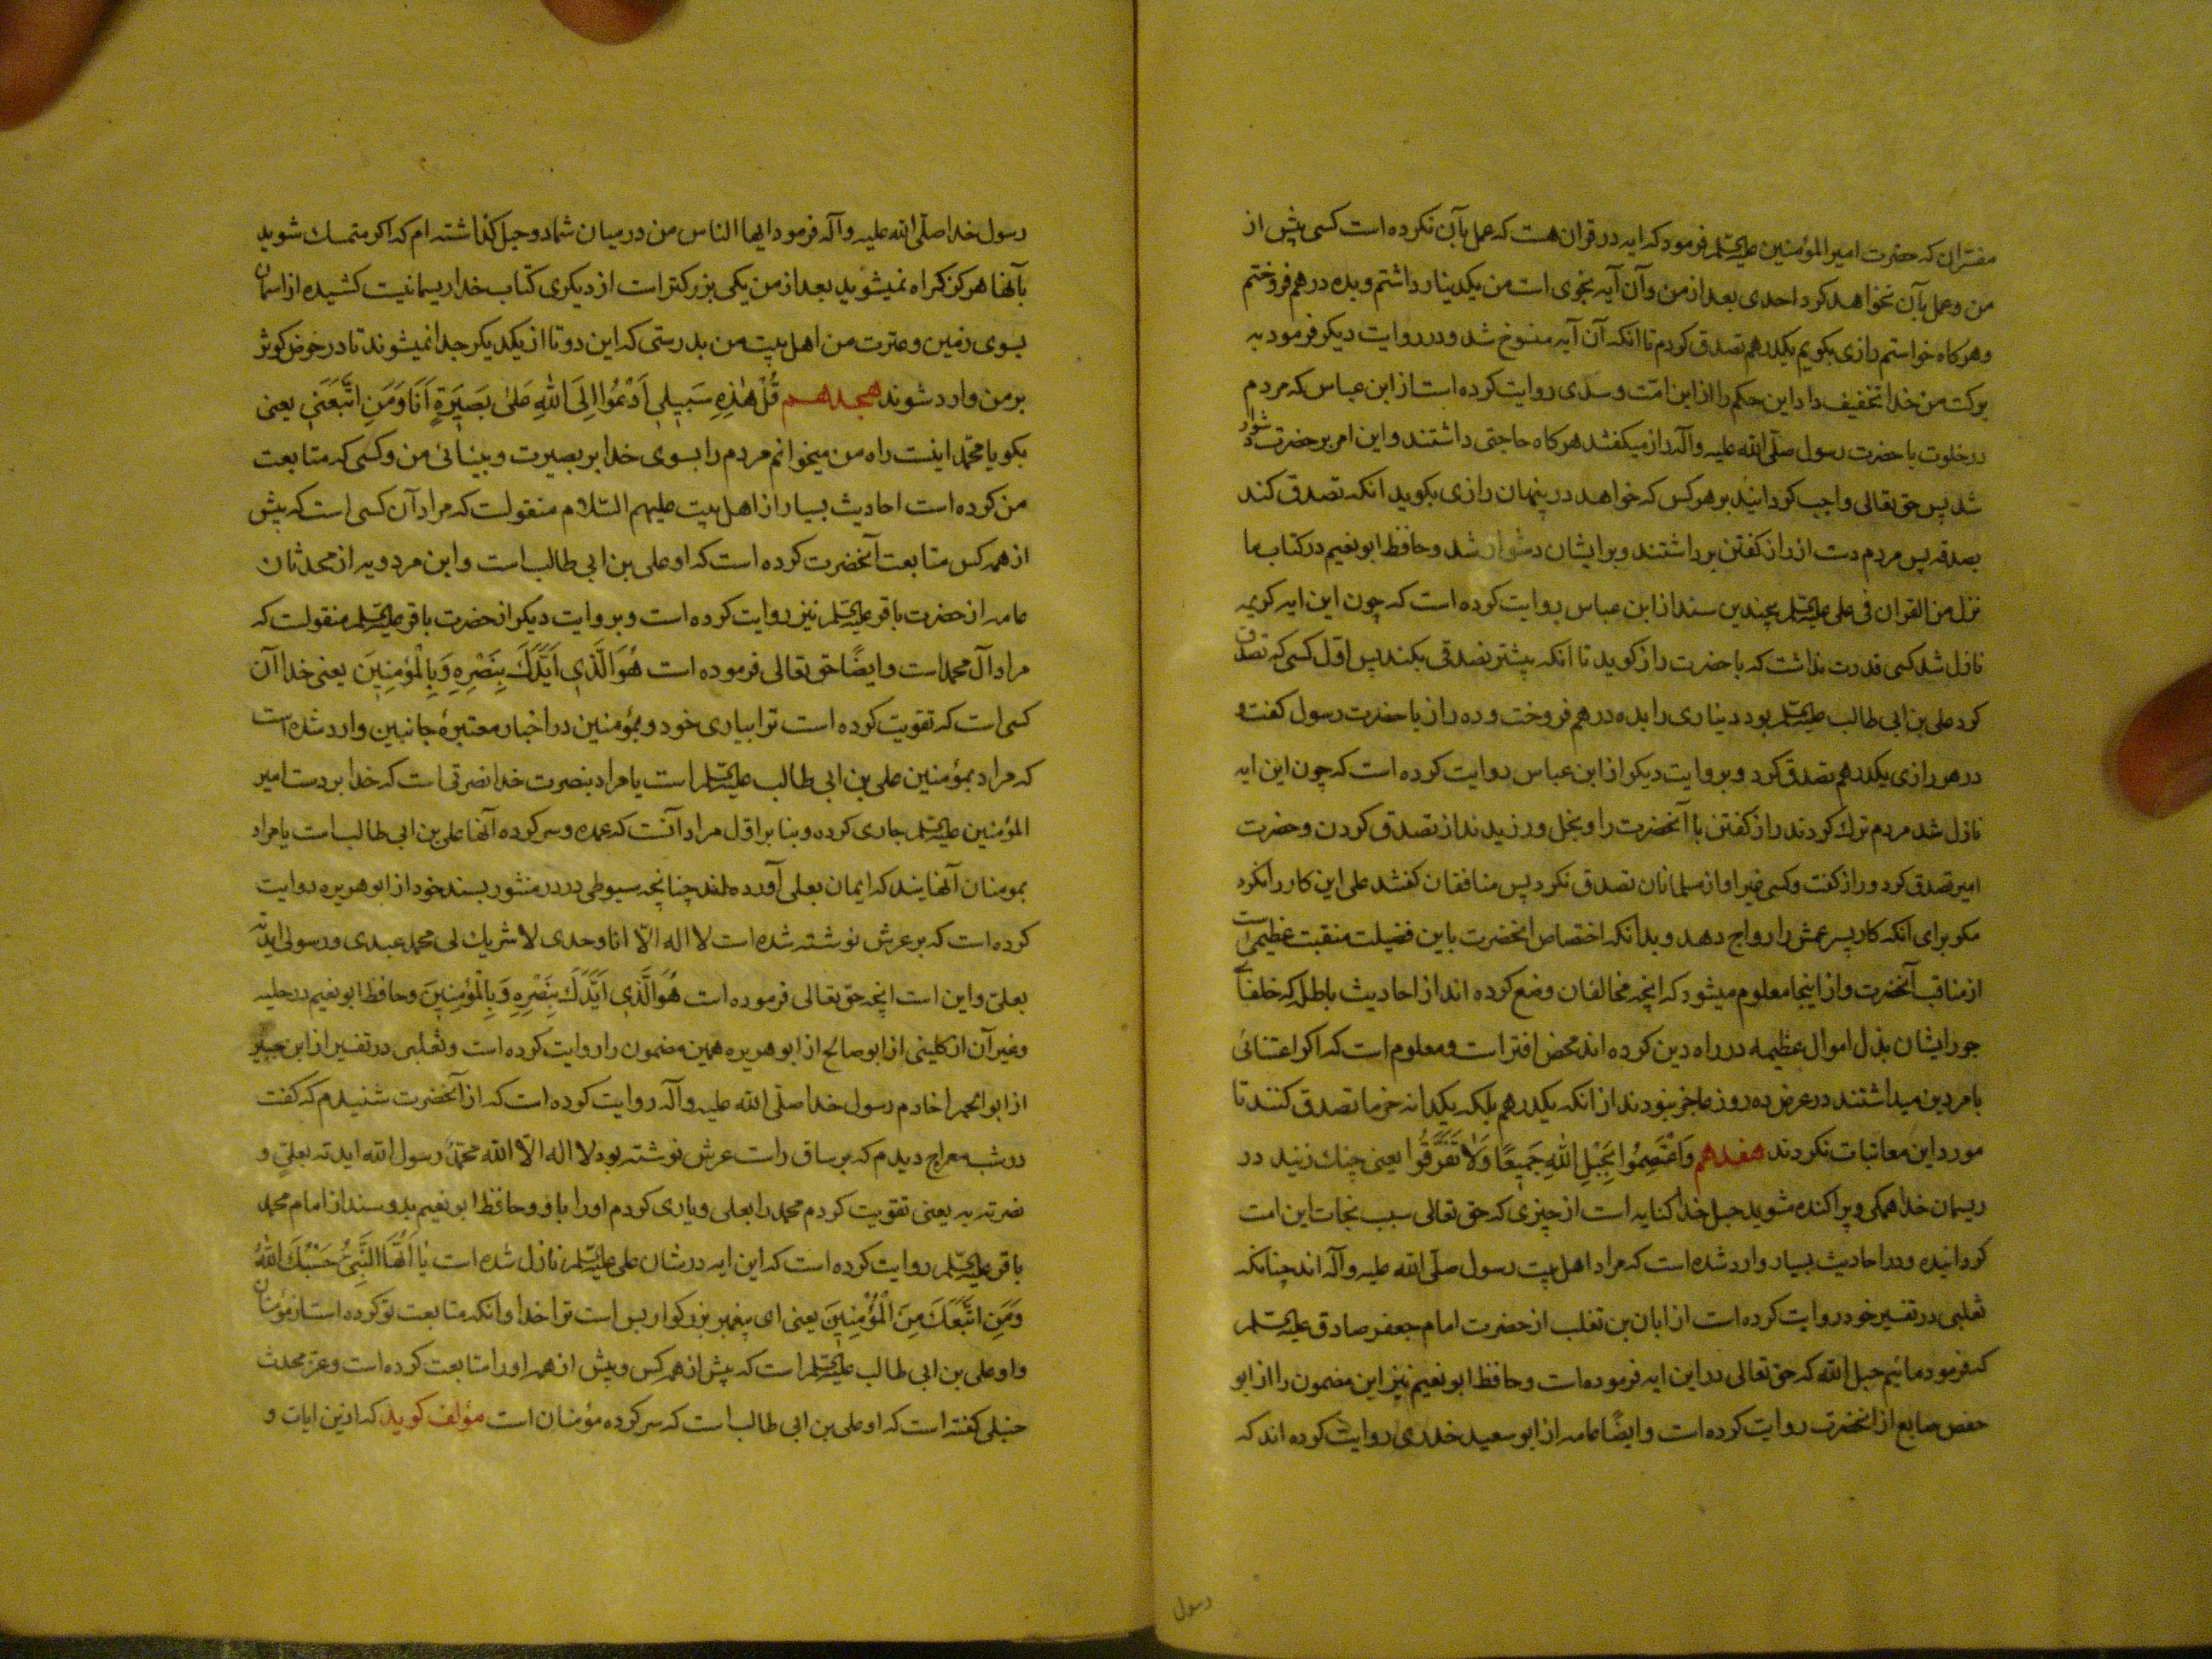 مفتران که حضرت امیرالمؤمنین علیه‌السلم فرمود که ایه در قران هست که عمل بآن نکرده است کسی پیش از
من و عمل بآن نخواهد کرد احدی بعد از من و آن آیه نجوی است من یکدینار داشتم و بده درهم فروختم
و هرکاه خواستم رازی بکویم یکدرهم تصدق کردم تا انکه آن آیه منسوخ شد و در روایت دیکر فرمود به
برکت من خدا تخفیف داد این حکم را از این امت و سدی روایت کرده است از ابن عباس که مردم
در خلوت با حضرت رسول صلّی الله علیه وآله راز میکفتند هرکاه حاجتی داشتند و این امر بر حضرت دشوار
شد پس حق تعالی واجب کردانید بر هر کس که خواهد در پنهان رازی بکوید انکه تصدق کند
بصدقه پس مردم دست از راز کفتن برداشتند و بر ایشان دشوار شد و حافظ ابو نعیم در کتاب ما
نزل من القران فی علی علیه‌السلم بچندین سند از ابن عباس روایت کرده است که چون این ایه کریمه
نازل شد کسی قدرت نداشت که با حضرت راز کوید تا انکه پیشتر تصدقی بکند پس اوّل کسی که تصدق
کرد علی بن ابی طالب علیه‌السلم بود دیناری را بده درهم فروخت و ده راز با حضرت رسول کفت و
در هر رازی یکدرهم تصدق کرد و بروایت دیکر از ابن عباس روایت کرده است که چون این ایه
نازل شد مردم ترک کردند راز کفتن با آنحضرت را و بخل ورزیدند از تصدق کردن و حضرت
امیر تصدق کرد و راز کفت و کسی غیر او از مسلمانان تصدق نکرد پس منافقان کفتند علی این کار را نکرد
مکر برای آنکه کار پسر عمش را رواج دهد و بدانکه اختصاص انحضرت باین فضیلت منقبت عظیمی است
از مناقب آنحضرت و از اینجا معلوم میشود که انچه مخالفان وضع کرده اند از احادیث باطل که خلفای
جور ایشان بذل اموال عظیمه در راه دین کرده اند محض افتراست و معلوم است که اکر اعتنائی
بامر دین میداشتند در عرض ده روز عاجز نبودند از انکه یکدرهم بلکه یکدانه خرما تصدق کنند تا
مورد این معاتبات نکردند هفدهم وَاعْتَصِمُوا بِحَبْلِ اللهِ جَمیعًا وَلا تَفَرَّقُوا یعنی چنک زنید در
ریسمان خدا همکی و پراکنده مشوید حبل خدا کنایه است از چیزی که حق تعالی سبب نجات این امت
کردانیده و در احادیث بسیار وارد شده است که مراد اهل بیت رسول صلّی الله علیه وآله اند چنانکه
ثعلبی در تفسیر خود روایت کرده است از ابان بن تغلب از حضرت امام جعفر صادق علیه‌السلم
که فرمود مائیم حبل الله که حق تعالی در این ایه فرموده است و حافظ ابو نعیم نیز این مضمون را از ابو
حفص صایع از انحضرت روایت کرده است و ایضًا عامه از ابو سعید خدری روایت کرده اند که
رسول
رسول خدا صلّی الله علیه وآله فرمود ایها الناس من در میان شما دو حبل کذاشته ام که اکر متمسک شوید
بآنها هرکز کمراه نمیشوید بعد از من یکی بزرکتر است از دیکری کتاب خدا ریسمانیست کشیده از اسمان
بسوی زمین و عترت من اهل بیت من بدرستی که این دو تا از یکدیکر جدا نمیشوند تا در حوض کوثر
بر من وارد شوند هجدهم قُلْ هٰذِهِ سَبیلی اَدْعُوا اِلَی اللهِ عَلیٰ بَصیرَةٍ اَنَا وَمَنِ اتَّبَعَنی یعنی
بکو یا محمّد اینست راه من میخوانم مردم را بسوی خدا بر بصیرت و بینائی من و کسی که متابعت
من کرده است احادیث بسیار از اهل بیت علیهم السّلام منقولست که مراد آن کسی است که پیش
از همه کس متابعت آنحضرت کرده است که او علی بن ابی طالب است و ابن مردویه از محدثان
عامه از حضرت باقر علیه‌السلم نیز روایت کرده است و بروایت دیکر از حضرت باقر علیه‌السلم منقولست که
مراد آل محمد است و ایضًا حق تعالی فرموده است هُوَ الَّذی اَیَّدَکَ بِنَصْرِهِ وَبِالْمُؤْمِنینَ یعنی خدا آن
کسی است که تقویت کرده است ترا بیاری خود و بمؤمنین در اخبار معتبرهٔ جانبین وارد شده است
که مراد بمؤمنین علی بن ابی طالب علیه‌السلم است یا مراد بنصرت خدا نصرتی است که خدا بر دست امیر
المؤمنین علیه‌السلم جاری کرده و بنا بر اوّل مراد آنست که عمده و سرکرده آنها علی بن ابی طالب است یا مراد
بمومنان آنهایند که ایمان بعلی آورده اند چنانچه سیوطی در در منثور بسند خود از ابو هریره روایت
کرده است که بر عرش نوشته شده است لا اله الّا انا وحدی لا شریک لی محمد عبدی و رسولی ایدته
بعلیّ و این است انچه حق تعالی فرموده است هُوَ الَّذی اَیَّدَکَ بِنَصْرِهِ وَبِالْمُؤْمِنینَ و حافظ ابو نعیم در حلیه
و غیر آن از کلینی از ابو صالح از ابو هریره همین مضمون را روایت کرده است و ثعلبی در تفسیر از ابن جبیر
از ابو الحمرا خادم رسول خدا صلّی الله علیه وآله روایت کرده است که از آنحضرت شنیدم که کفت
در شب معراج دیدم که بر ساق راست عرش نوشته بود لا اله الّا الله محمّد رسول الله ایدته بعلیّ و
نصرته به یعنی تقویت کردم محمد را بعلی و یاری کردم او را باو و حافظ ابو نعیم بدو سند از امام محمد
باقر علیه‌السلم روایت کرده است که این ایه در شان علی علیه‌السلم نازل شده است یٰا اَیُّهَا النَّبِیُّ حَسْبُکَ اللهُ
وَمَنِ اتَّبَعَکَ مِنَ الْمُؤْمِنینَ یعنی ای پیغمبر بزرکوار بس است ترا خدا و انکه متابعت تو کرده است از مؤمنان
و او علی بن ابی طالب علیه‌السلم است که پیش از همه کس و بیش از همه او را متابعت کرده است و عز محدث
حنبلی کفته است که او علی بن ابی طالب است که سرکرده مؤمنان است مؤلف کوید که از این ایات و